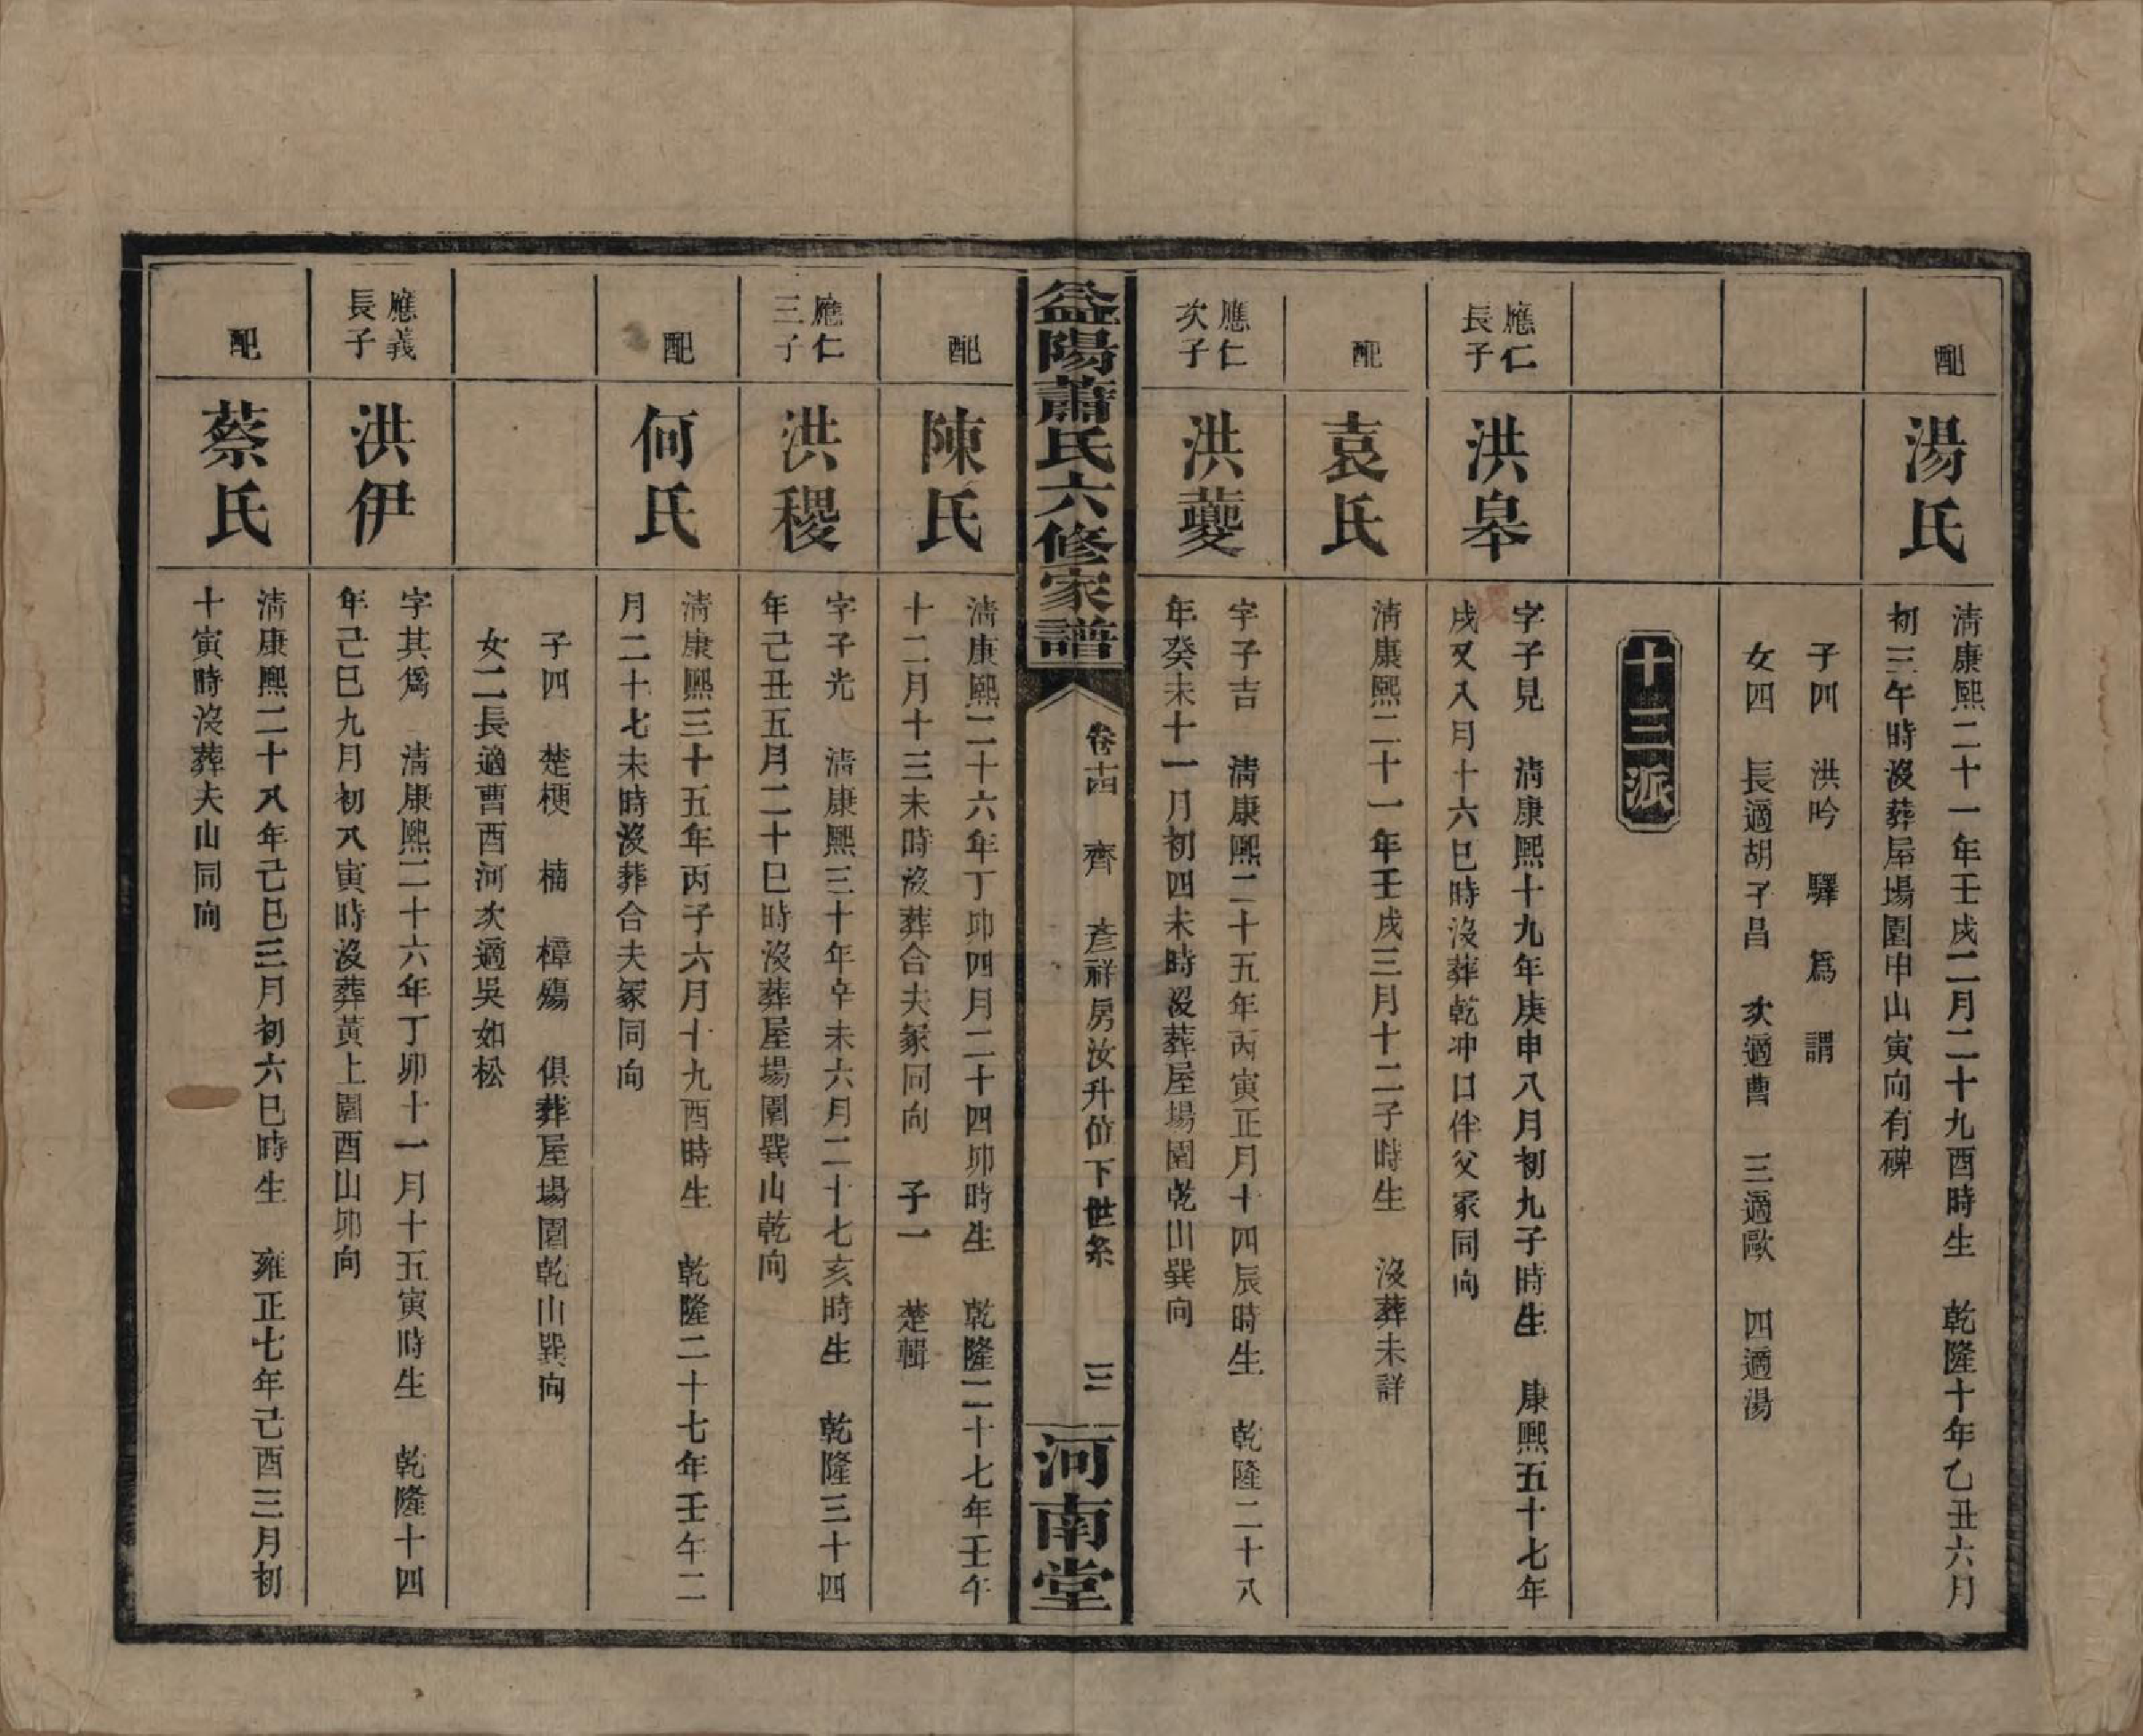 配
湯氏
清康熙二十一年壬戌二月二十九酉時生　乾隆十年乙丑六月
初三午時沒葬屋場園申山寅向有碑
子四　洪吟　驛　爲　謂
女四　長適胡子昌　次適曹　三適歐　四適湯
十三派
應仁
長子
洪皋
字子見　清康熙十九年庚申八月初九子時生　康熙五十七年
戌又八月十六巳時沒葬乾冲口伴父冢同向
配
袁氏
清康熙二十一年壬戌三月十二子時生　沒葬未詳
應仁
次子
洪夔
字子吉　清康熙二十五年丙寅正月十四辰時生　乾隆二十八
年癸未十一月初四未時沒葬屋場園乾山巽向
益陽蕭氏六修家譜
卷十四　齊　彥祥房汝升位下世系　三
河南堂
配
陳氏
清康熙二十六年丁卯四月二十四卯時生　乾隆二十七年壬午
十二月十三未時沒葬合夫冢同向　子一　楚輯
應仁
三子
洪稷
字子光　清康熙三十年辛未六月二十七亥時生　乾隆三十四
年己丑五月二十巳時沒葬屋場園巽山乾向
配
何氏
清康熙三十五年丙子六月十九酉時生　乾隆二十七年壬午二
月二十七未時沒葬合夫冢同向
子四　楚梗　楠　樟殤　俱葬屋場園乾山巽向
女二長適曹酉河次適吳如松
應義
長子
洪伊
字其爲　清康熙二十六年丁卯十一月十五寅時生　乾隆十四
年己巳九月初八寅時沒葬黃上園酉山卯向
配
蔡氏
清康熙二十八年己巳三月初六巳時生　雍正七年己酉三月初
十寅時沒葬夫山同向